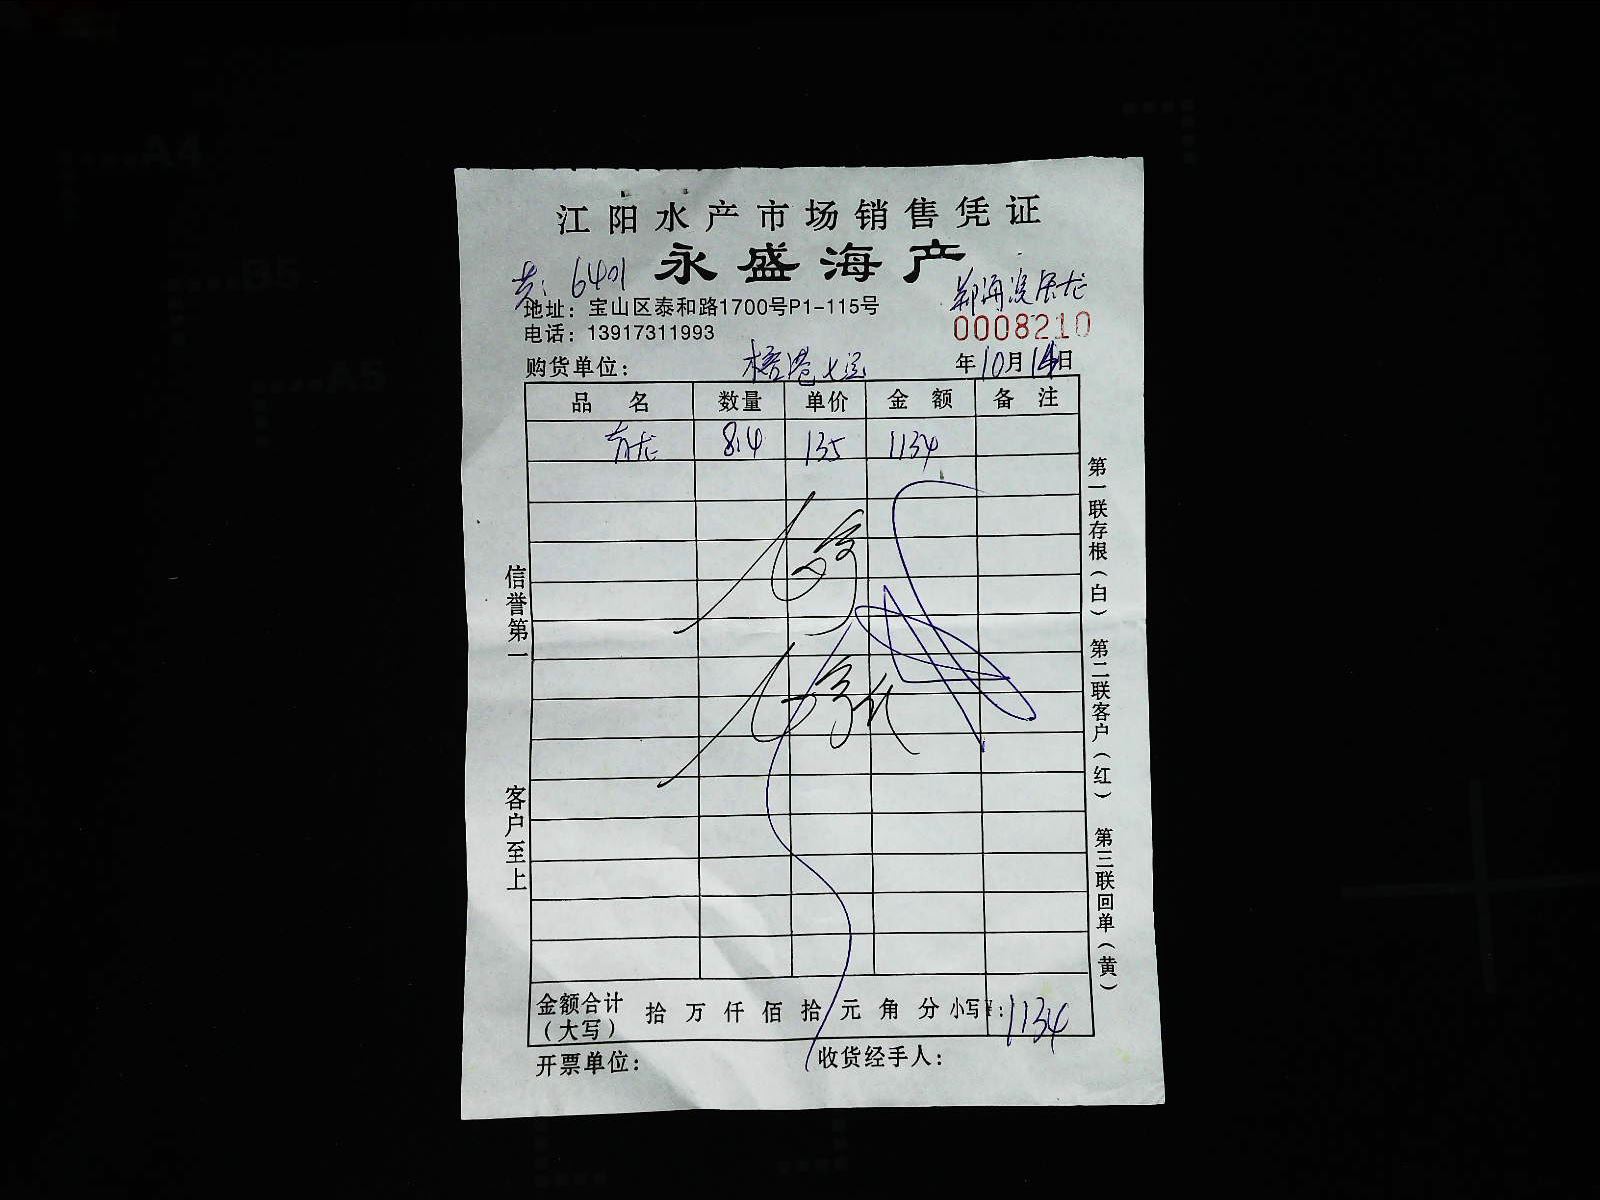 江阳水产市场销售凭证
永盛海产
6401
地址：宝山区泰和路1700号P1-115号
电话：13917311993
0008210
购货单位： 年10月14日
品名 数量 单价 金额 备注
青龙 8.4 135 1134
信誉第一
客户至上
第一联存根（白） 第二联客户（红） 第三联回单（黄）
金额合计（大写） 拾 万 仟 佰 拾 元 角 分 小写¥：1134
开票单位： 收货经手人：